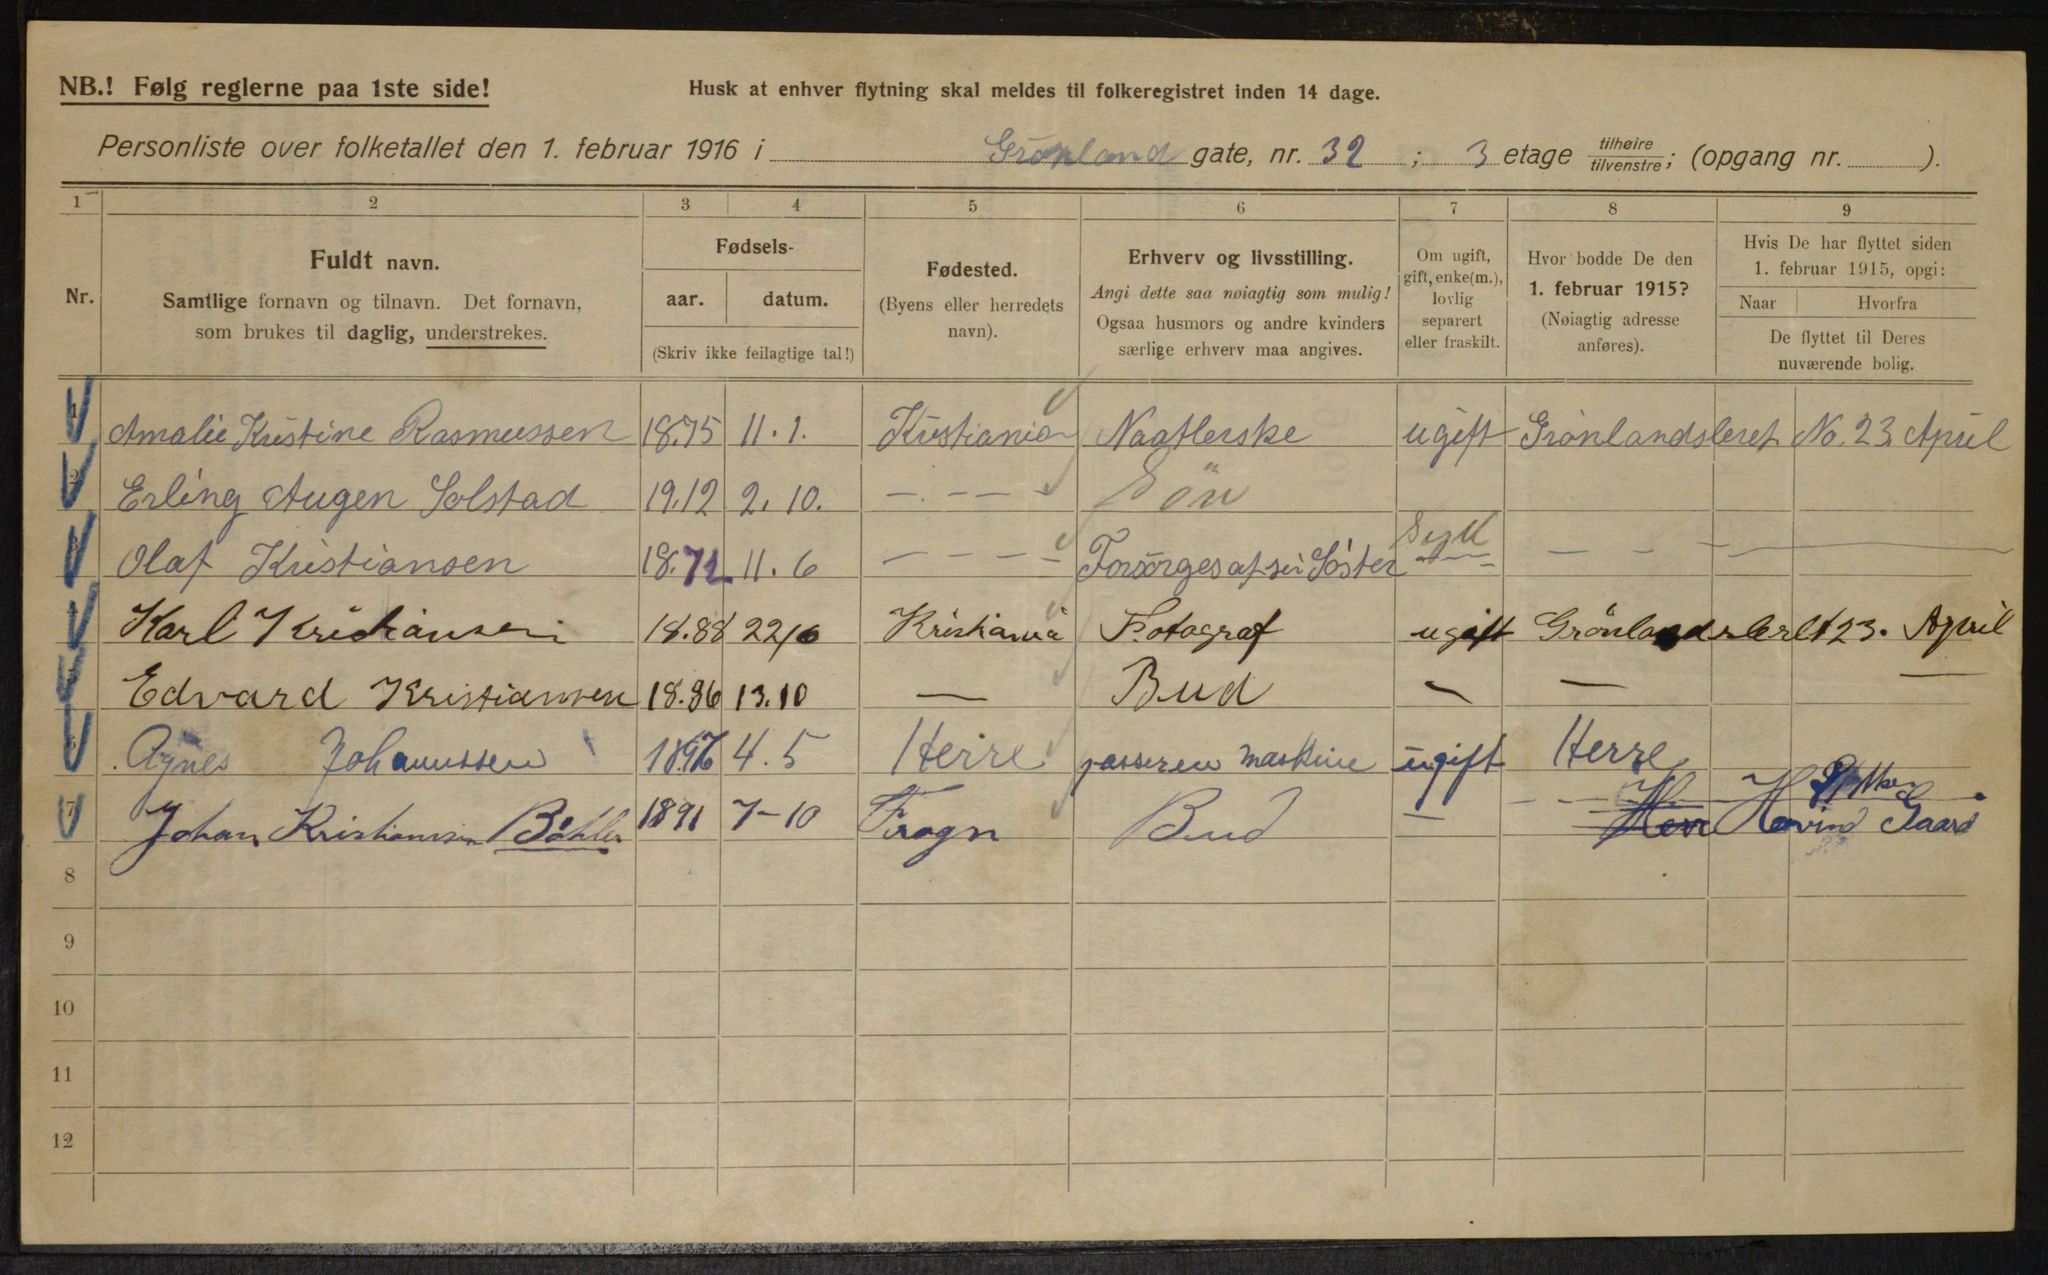 NB.! Følg reglerne paa 1ste side!
Husk at enhver flytning skal meldes til folkeregistret inden 14 dage.
Personliste over folketallet den 1. februar 1916 i Grønland gate, nr. 32 ; 3 etage tilhøire tilvenstre; (opgang nr. ).
1 2 3 4 5 6 7 8 9
Nr.
Fuldt navn.
Samtlige fornavn og tilnavn. Det fornavn,
som brukes til daglig, understrekes.
Fødsels-
aar. datum.
(Skriv ikke feilagtige tal!)
Fødested.
(Byens eller herredets
navn).
Erhverv og livsstilling.
Angi dette saa nøiagtig som mulig!
Ogsaa husmors og andre kvinders
særlige erhverv maa angives.
Om ugift,
gift, enke(m.),
lovlig
separert
eller fraskilt.
Hvor bodde De den
1. februar 1915?
(Nøiagtig adresse
anføres).
Hvis De har flyttet siden
1. februar 1915, opgi:
Naar Hvorfra
De flyttet til Deres
nuværende bolig.
Amalie Kristine Rasmussen 18.75 11.1. Kristiania Naatlerske ugift Grønlandsleret No. 23 April
Erling Augen Solstad 19.12 2.10. – – – – Sön
Olaf Kristiansen 18.72 11.6 – – – – Forsörges af sin Söster Syk – – –
Karl Kristiansen 18.88 22/6 Kristiania Fotograf ugift Grönlandsleret 23. April
Edvard Kristiansen 18.86 13.10 — Bud — — —
Agnes Johannssen 1897 4.5 Herre passeren maskine ugift Herre
7 Johan Kristiansen Böhler 1891 7-10 Frogn Bud — Hovind Gaard
8
9
10
11
12